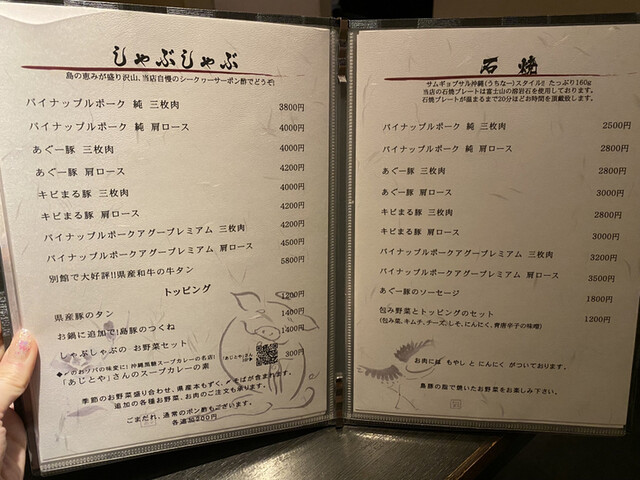 しゃぶしゃぶ
島の恵みが盛り沢山、当店自慢のシークヮーサーポン酢でどうぞ!
パイナップルポーク 純 三枚肉 3800円
パイナップルポーク 純 肩ロース 4000円
あぐー豚 三枚肉 4000円
あぐー豚 肩ロース 4200円
キビまる豚 三枚肉 4000円
キビまる豚 肩ロース 4200円
パイナップルポークアグープレミアム 三枚肉 4200円
パイナップルポークアグープレミアム 肩ロース 4500円
別館で大好評!!県産和牛の牛タン 5800円
トッピング
県産豚のタン 1200円
お鍋に追加で!島豚のつくね 1400円
しゃぶしゃぶの お野菜セット 1400円
〆のおツバの味変に! 沖縄黒糖スープカレーの名店!
「あじとや」さんのスープカレーの素 300円
(あじとや)さん
季節のお野菜盛り合わせ、県産本もずく、〆そばが含まれます。
追加の各種お野菜、お肉のご注文も承ります。
ごまだれ、通常のポン酢もございます。
各追加200円
石焼
サムギョプサル沖縄(うちなー)スタイル!! たっぷり160g
当店の石焼プレートは富士山の溶岩石を使用しております。
石焼プレートが温まるまで20分ほどお時間を頂戴致します。
パイナップルポーク 純 三枚肉 2500円
パイナップルポーク 純 肩ロース 2800円
あぐー豚 三枚肉 2800円
あぐー豚 肩ロース 3000円
キビまる豚 三枚肉 2800円
キビまる豚 肩ロース 3000円
パイナップルポークアグープレミアム 三枚肉 3200円
パイナップルポークアグープレミアム 肩ロース 3500円
あぐー豚のソーセージ 1800円
包み野菜とトッピングのセット 1200円
(包み菜、キムチ、チーズ)しそ、にんにく、青唐辛子の味噌)
お肉には もやし と にんにく がついております。
島豚の脂で焼いたお野菜をお楽しみ下さい。